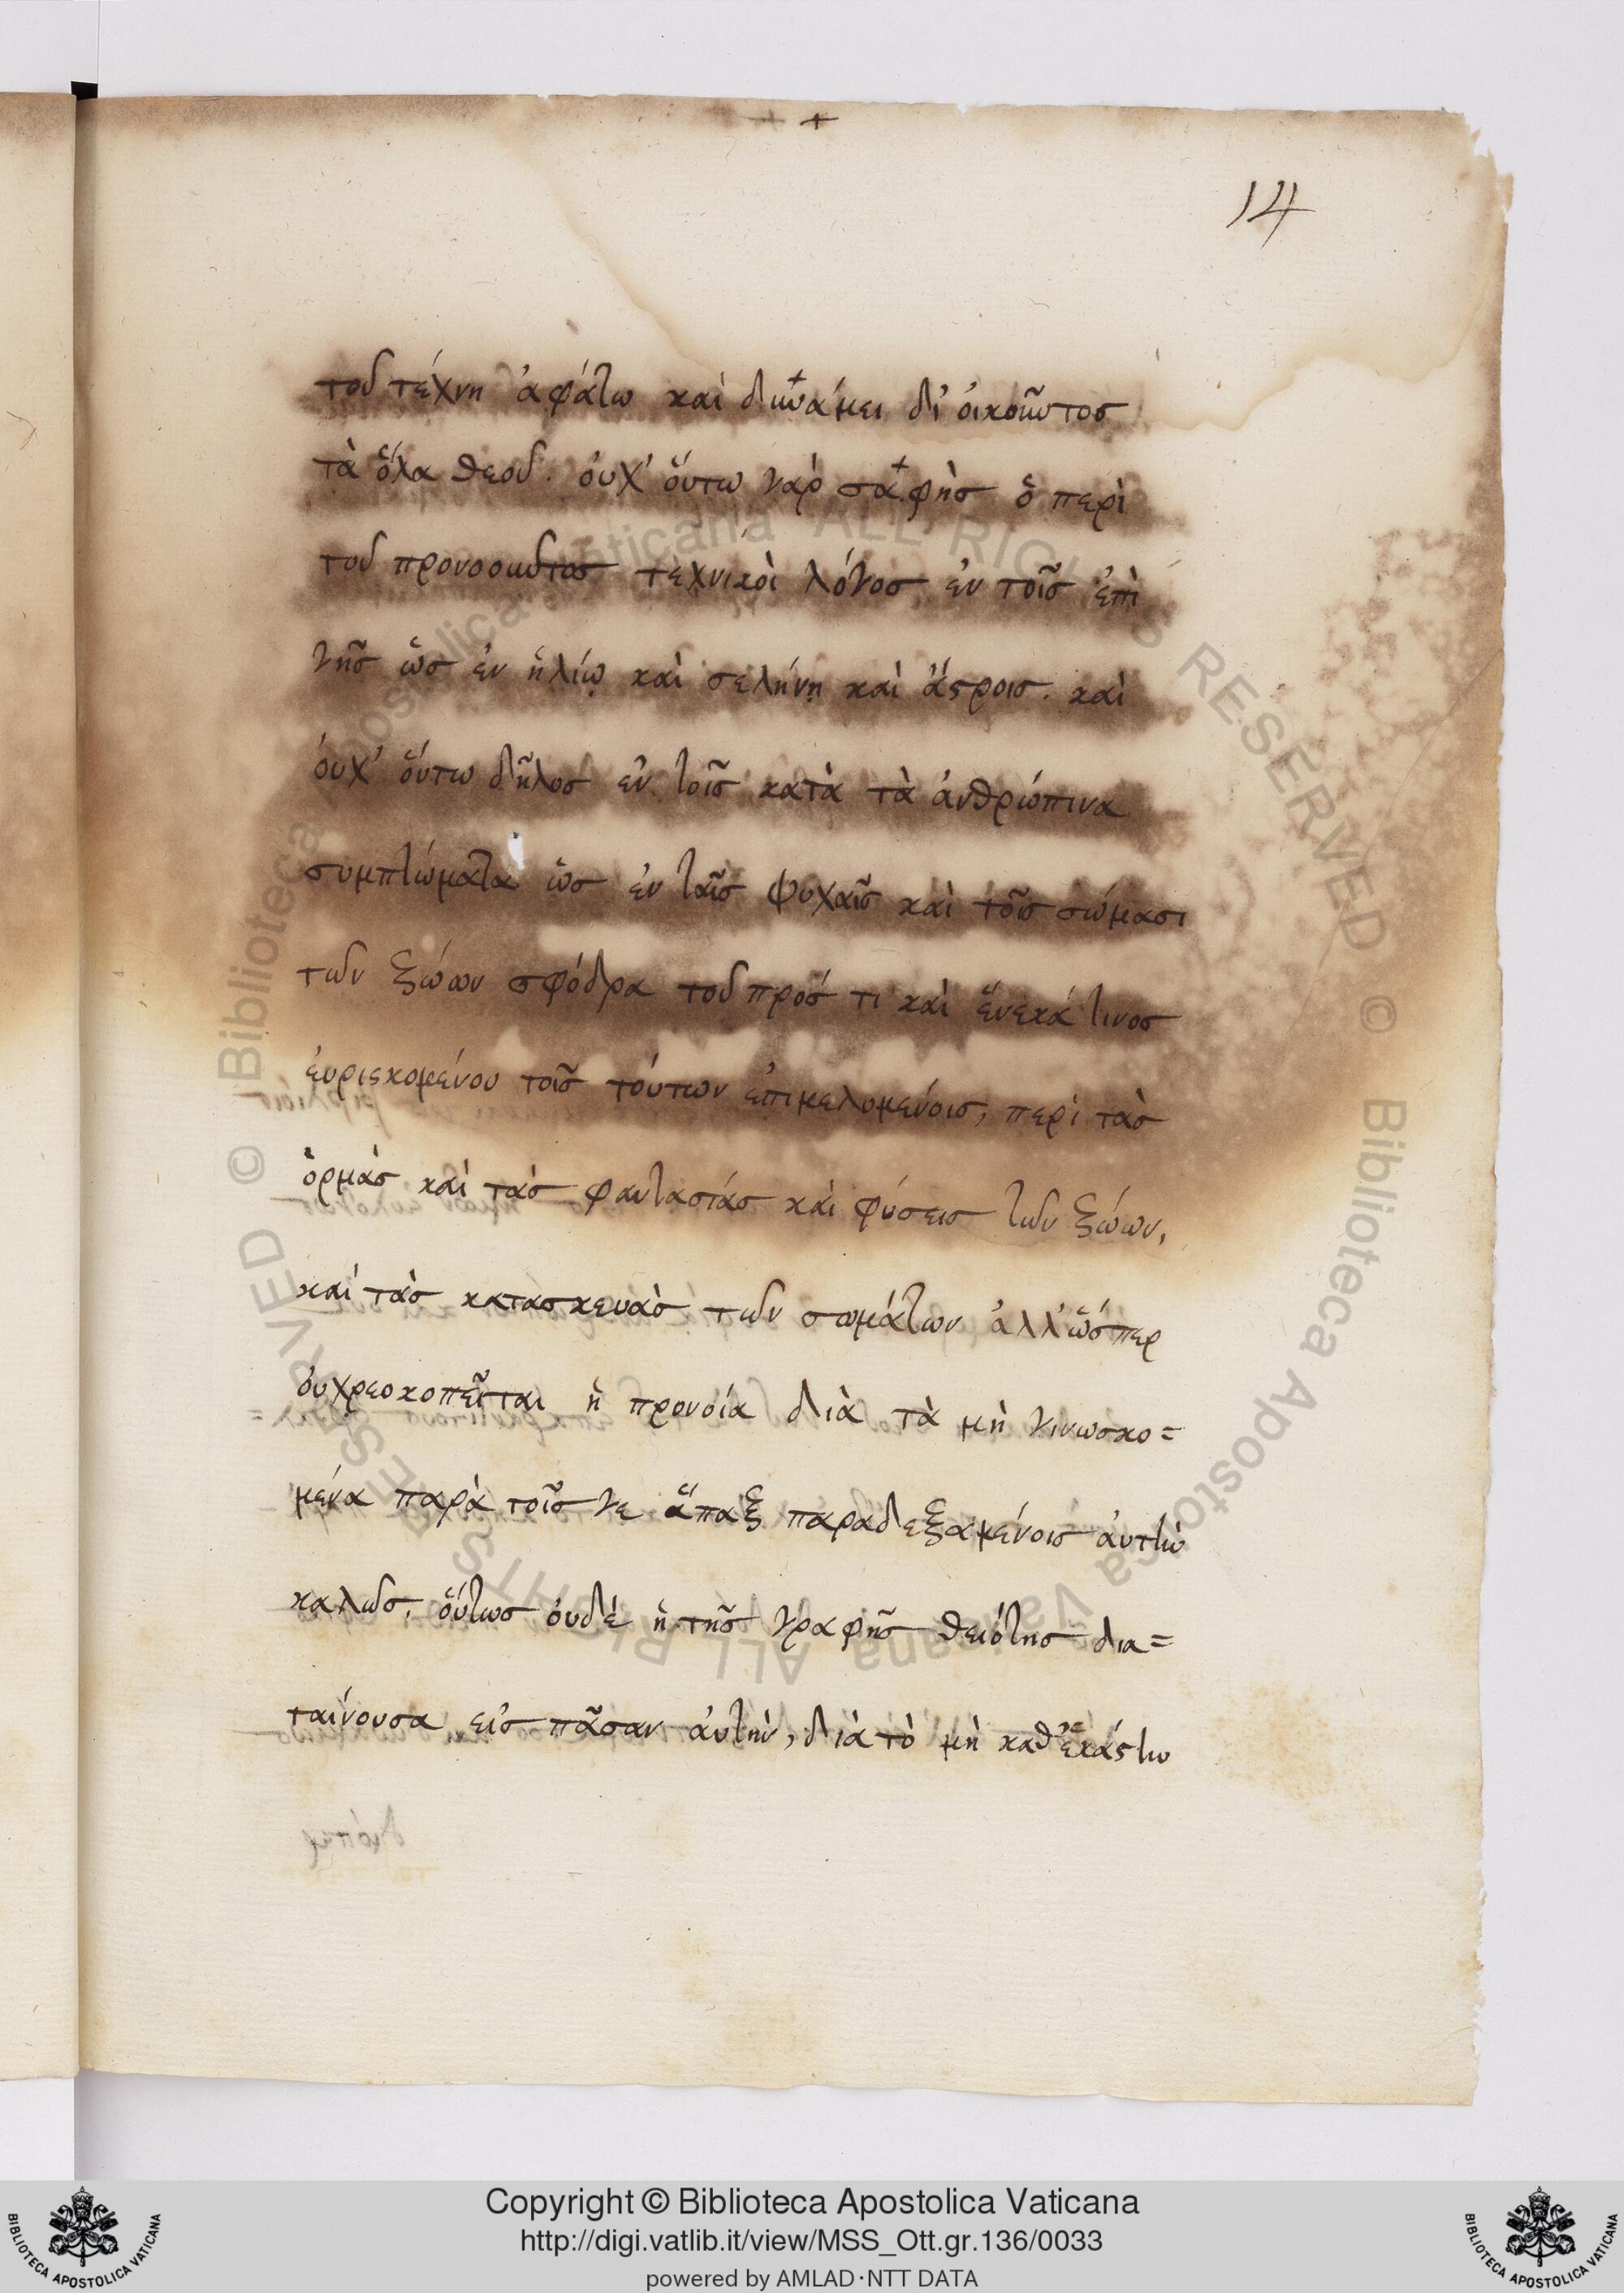 +
14
τοῦ τέχνη ἀφάτω καὶ δυνάμει δι' οἰκοῦντος
τὰ ὅλα θεοῦ. οὐχ' οὕτω γὰρ σαφὴς ὁ περὶ
τοῦ προνοοῦντος τεχνικὸι λόγος ἐν τοῖς ἐπὶ
γῆς ὡς ἐν ἡλίῳ καὶ σελήνῃ καὶ ἄστροις. καὶ
οὐχ' οὕτω δῆλος ἐν τοῖς κατὰ τὰ ἀνθρώπινα
συμπτώματα ὡς ἐν ταῖς ψυχαῖς καὶ τοῖς σώμασι
τῶν ξώων σφόδρα τοῦ πρός τι καὶ ἕνεκά τινος
εὑρισκομένου τοῖς τούτων ἐπιμελομένοις, περὶ τὰς
ὁρμὰς καὶ τὰς φαντασίας καὶ φύσεις τῶν ξώων,
καὶ τὰς κατασκευὰς τῶν σωμάτων ἀλλ' ὥσπερ
οὐχρεοκοπεῖται ἡ προνοία διὰ τὰ μὴ γινωσκο=
μένα παρὰ τοῖς γε ἅπαξ παραδεξαμένοις αὐτὴν
καλῶς, οὕτως οὐδὲ ἡ τῆς γραφῆς θειότης δια=
ταίνουσα εἰς πᾶσαν αὐτὴν, διὰ τὸ μὴ καθ' ἑκάστω
Copyright © Biblioteca Apostolica Vaticana
http://digi.vatlib.it/view/MSS_Ott.gr.136/0033
powered by AMLAD·NTT DATA
BIBLIOTECA APOSTOLICA VATICANA
BIBLIOTECA APOSTOLICA VATICANA
© Biblioteca Apostolica Vaticana ALL RIGHTS RESERVED © Biblioteca Apostolica Vaticana ALL RIGHTS RESERVED